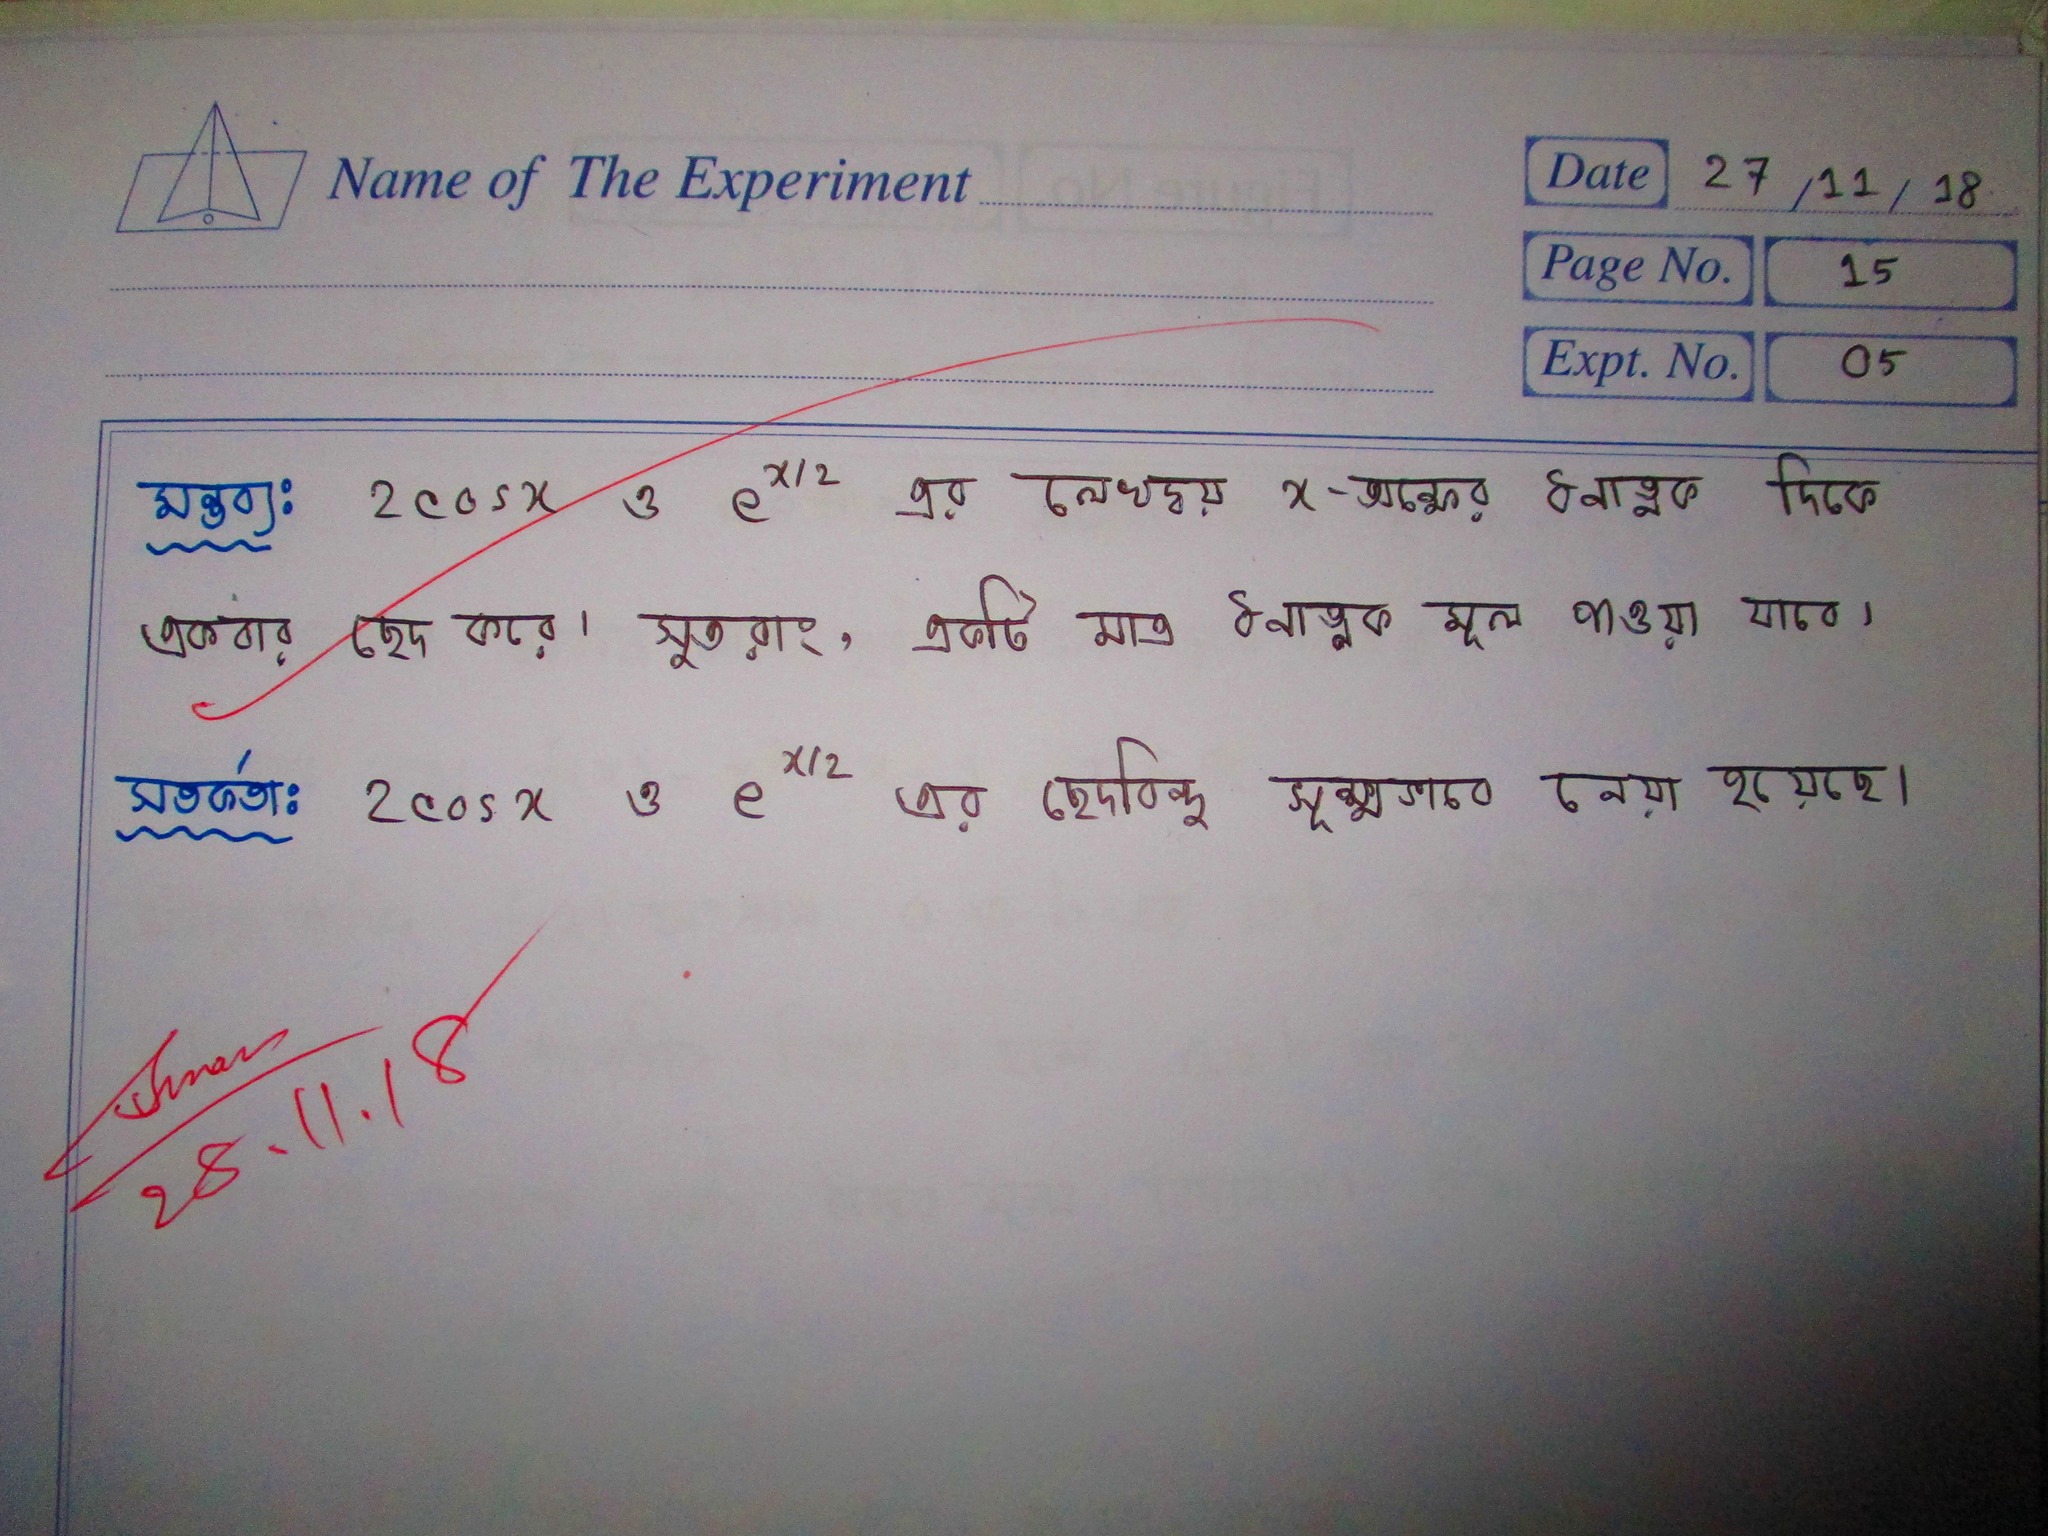 Name of The Experiment
Date 27/11/18
Page No. 15
Expt. No. 05
মন্তব্যঃ 2cosx ও e^x/2 এর লেখদ্বয় x-অক্ষের ধনাত্নক দিকে
একবার ছেদ করে। সুতরাং, একটি মাত্র ধনাত্নক মূল পাওয়া যাবে।
সতর্কতাঃ 2cosx ও e^x/2 এর ছেদবিন্দু সূক্ষ্মভাবে নেয়া হয়েছে।
28.11.18